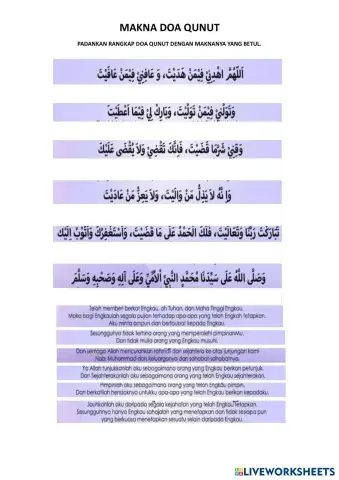 MAKNA DOA QUNUT
PADANKAN RANGKAP DOA QUNUT DENGAN MAKNANYA YANG BETUL.
اَللّٰهُمَّ اهْدِنِيْ فِيْمَنْ هَدَيْتَ، وَ عَافِنِيْ فِيْمَنْ عَافَيْتَ
وَتَوَلَّنِيْ فِيْمَنْ تَوَلَّيْتَ، وَبَارِكْ لِيْ فِيْمَا أَعْطَيْتَ
وَقِنِيْ شَرَّمَا قَضَيْتَ، فَإِنَّكَ تَقْضِيْ وَلاَ يُقْضَى عَلَيْكَ
وَإِنَّهُ لاَ يَذِلُّ مَنْ وَالَيْتَ، وَلاَ يَعِزُّ مَنْ عَادَيْتَ
تَبَارَكْتَ رَبَّنَا وَتَعَالَيْتَ، فَلَكَ الْحَمْدُ عَلَى مَا قَضَيْتَ، وَأَسْتَغْفِرُكَ وَأَتُوْبُ إِلَيْكَ
وَصَلَّى اللَّهُ عَلَى سَيِّدِنَا مُحَمَّدٍ النَّبِيِّ الْأُمِّيِّ وَعَلَى آلِهِ وَصَحْبِهِ وَسَلَّمَ
Telah memberi berkat Engkau, ah Tuhan, dan Maha Tinggi Engkau.
Maka bagi Engkaulah segala pujian terhadap apa-apa yang telah Engkah tetapkan.
Aku minta ampun dan bertaubat kepada Engkau.
Sesungguhnya tidak terhina orang yang memperolehi pimpinanMu.
Dan tidak mulia orang yang Engkau musuhi.
Dan semoga Allah mencurahkan rahmat dan sejahtera ke atas junjungan kami
Nabi Muhammad dan keluarganya dan sahabat-sahabatnya.
Ya Allah tunjukkanlah aku sebagaimana orang yang Engkau berikan petunjuk.
Dan Sejahterakanlah aku sebagaimana orang yang telah Engkau sejahterakan.
Pimpinlah aku sebagaimana orang yang telah Engkau pimpin.
Dan berkatilah hendaknya untukku apa-apa yang telah Engkau berikan kepadaku.
Jauhkanlah aku daripada segala kejahatan yang telah Engkau tetapkan.
Sesungguhnya hanya Engkau sahajalah yang menetapkan dan tidak sesiapa pun
yang berkuasa menetapkan sesuatu selain daripada Engkau.
LIVEWORKSHEETS